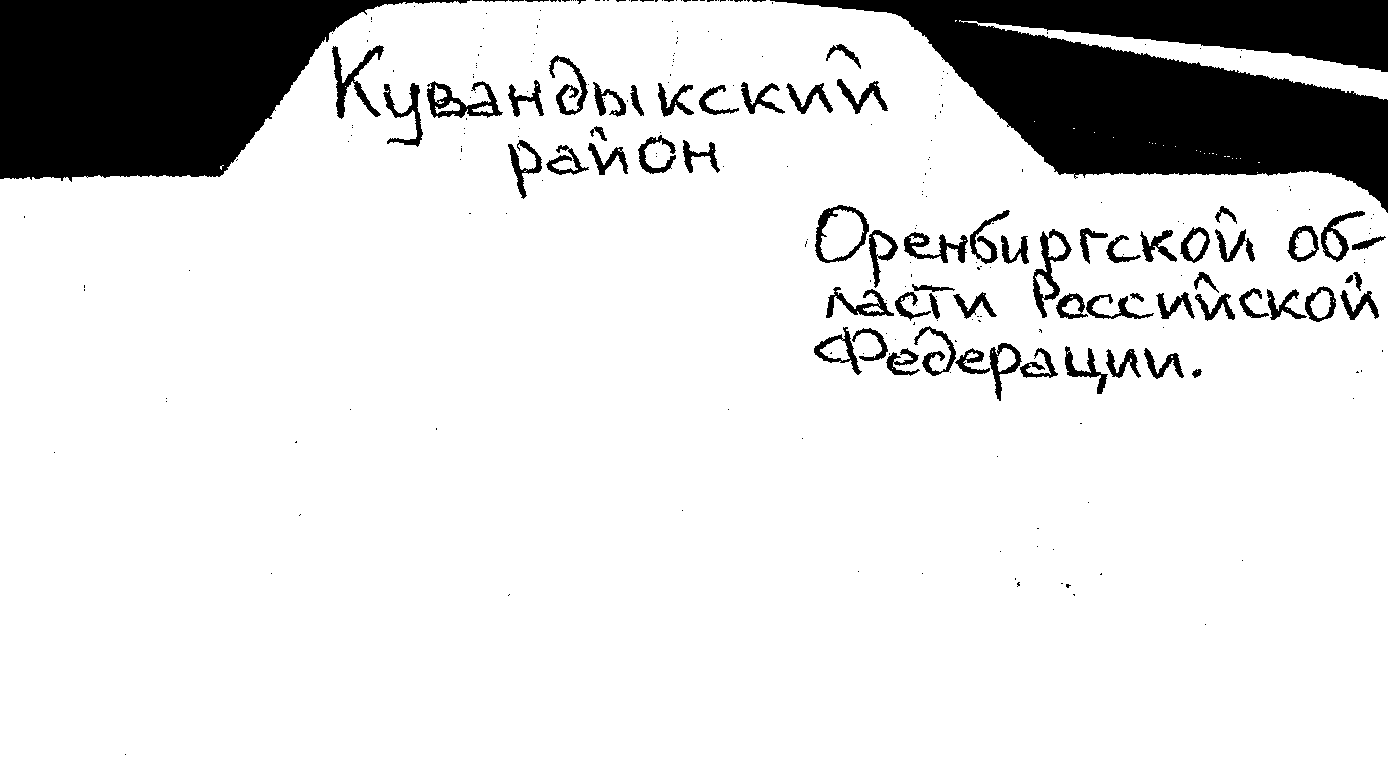 Кувандыкский
район
Оренбиргской об-
ласти Российской
Федерации.